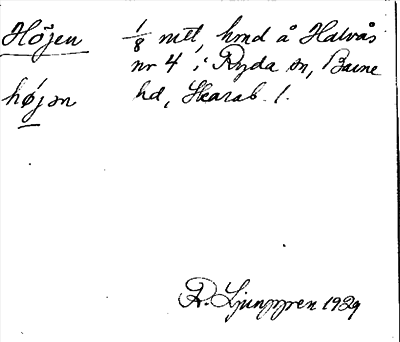 Höjen 1/8 mtl, hmd å Halvås
nr 4 i Ryda sn, Barne
højən hd, Skarab. l.
R. Ljunggren 1929